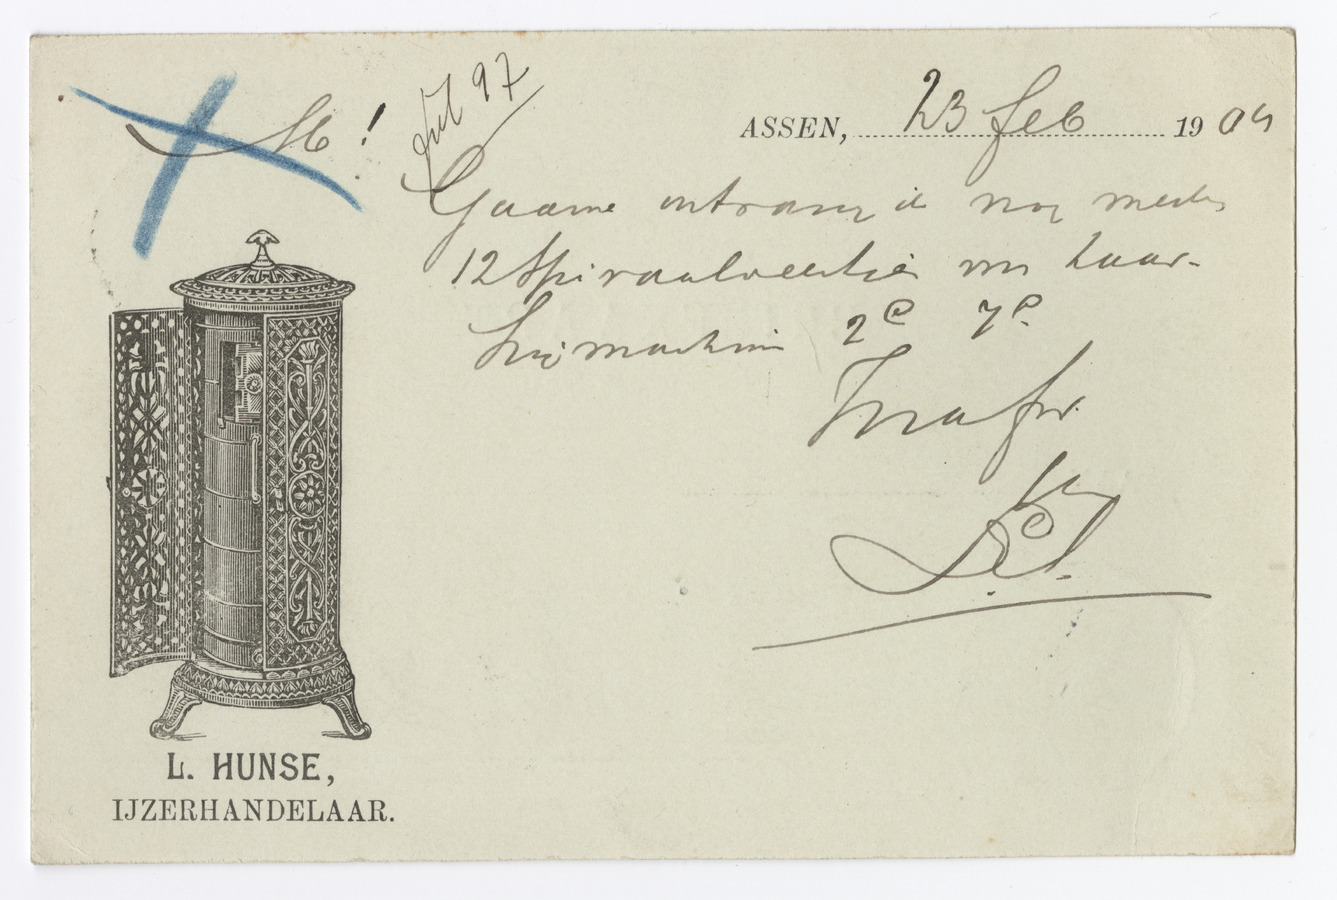 M!
ASSEN, 23 feb 1904
Gaarne ontvang ik nog mede
12 Spiraalveertjes van haar-
snijmachin 2e 7e
L. HUNSE,
IJZERHANDELAAR.